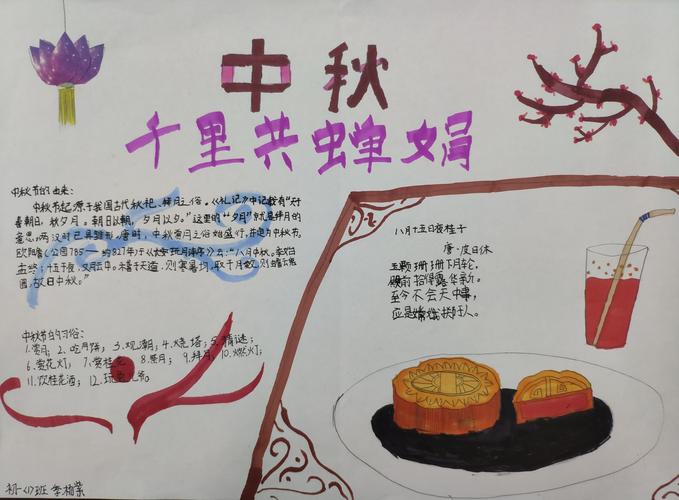 中秋
千里共蝉娟
中秋节的由来:
中秋节起源于我国古代秋祀、拜月之俗。《礼记》中记载有“
春朝日,秋夕月。朝日以朝,夕月以夕。”这里的“夕月”就是拜月的
意思。两汉时已具雏形,唐时,中秋赏月之俗始盛行,并定为中秋节。
欧阳詹(公园785—约827年)于《长安玩月诗序》云:“八月中秋。季始
孟终;十五于夜,又月云中。稽于天道,则寒暑均,取于月数,则蟾兔
圆,故曰中秋。”
中秋节的习俗:
1.赏月; 2、吃月饼; 3、观潮; 4.烧塔; 5.猜谜;
6.赏花灯; 7.赏桂花 8.祭月; 9.拜月; 10.燃灯;
11.饮桂花酒; 12.玩兔儿爷
八月十五日夜桂子
唐·皮日休
玉颗珊珊下月轮,
殿前拾得露华新。
至今不会天中事,
应是嫦娥掷与人。
初一(1)班 李